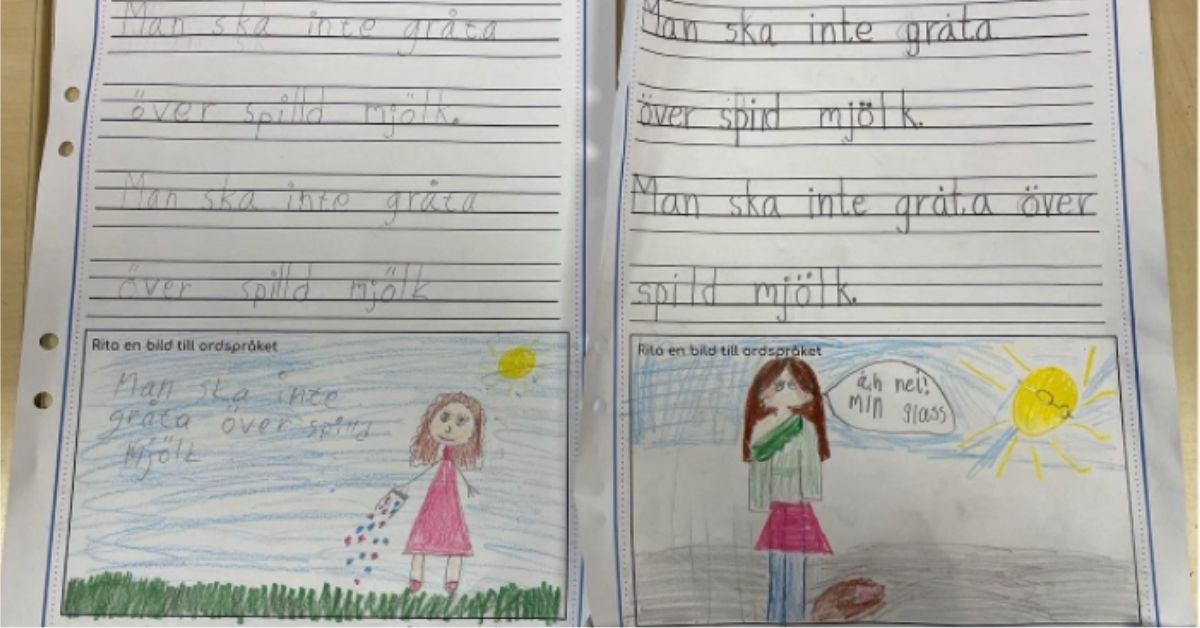 Man ska inte gråta
över spilld mjölk.
Man ska inte gråta
över spilld mjölk
Rita en bild till ordspråket
Man ska inte
gråta över spilld
mjölk
Man ska inte gråta
över spild mjölk.
Man ska inte gråta över
spild mjölk.
Rita en bild till ordspråket
åh nej!
min glass